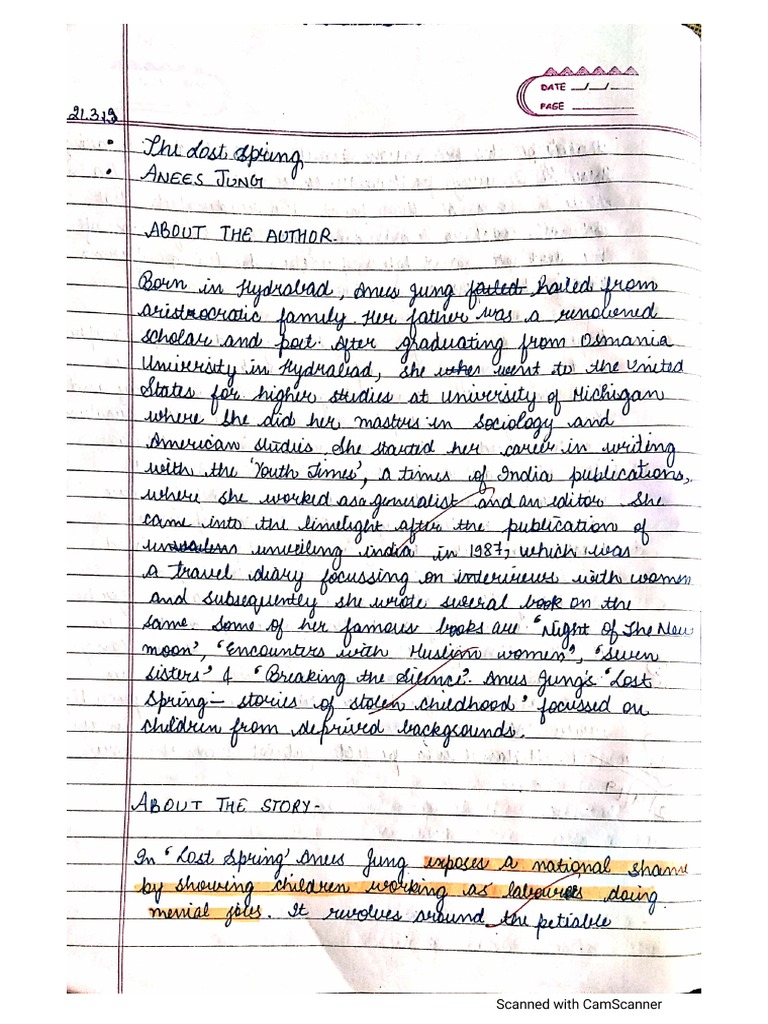 DATE _/_/_
PAGE
21.3.19
• The Lost Spring
• ANEES JUNG
ABOUT THE AUTHOR.
Born in Hydrabad, Anees Jung failed hailed from
aristrocratic family. Her father was a renowned
scholar and poet. After graduating from Osmania
University in Hydrabad, she went to the United
States for higher studies at university of Michigan
where she did her masters in Sociology and
American studies. She started her career in writing
with the 'Youth Times', a times of India publications,
where she worked as a generalist and an editor. She
came into the limelight after the publication of
unveiling india in 1987, which was
a travel diary focussing on interviews with women
and subsequently she wrote several book on the
same. Some of her famous books are "Night of The New
moon", "Encounters with Muslim women", "Seven
sisters" & "Breaking the Silence". Anees Jung's "Lost
Spring - stories of stolen childhood" focussed on
children from deprived backgrounds.
ABOUT THE STORY-
In "Lost Spring" Anees Jung exposes a national shame
by showing children working as labourers doing
menial jobs. It revolves around the petiable
Scanned with CamScanner